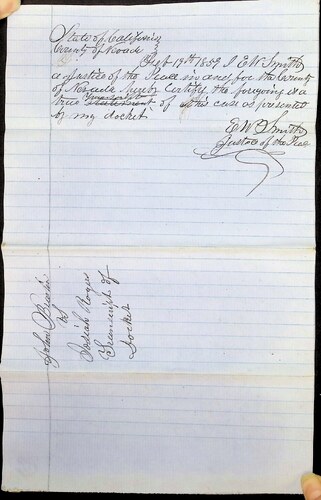 State of California
County of Nevada
Sept 19th 1859 I E W Smith
a Justice of the Peace in and for the County
of Nevada hereby Certify the foregoing is a
true Transcript of this case as presented
by my docket
E W Smith
Justice of the Peace
John
vs
Josiah Rogers
Transcript of
Docket